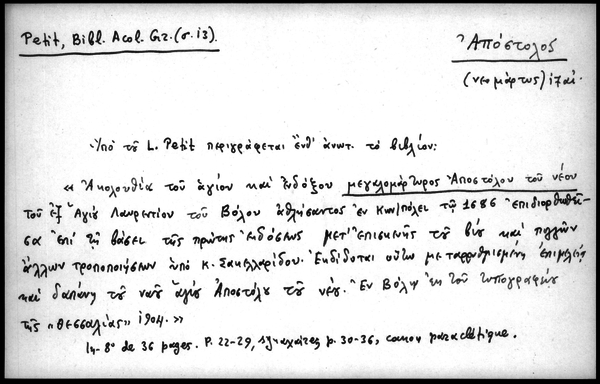 Petit, Bibl. Acol. Gr. (σ. 13).
Ἀπόστολος
(νεομάρτυς) 17 αἰ.
Ὑπὸ τοῦ L. Petit περιγράφεται ἔνθ' ἀνωτ. τὸ βιβλίον:
« Ἀκολουθία τοῦ ἁγίου καὶ ἐνδόξου μεγαλομάρτυρος Ἀποστόλου τοῦ νέου
τοῦ ἐξ Ἁγίου Λαυρεντίου τοῦ Βόλου ἀθλήσαντος ἐν Κων/πόλει τῷ 1686 ἐπιδιορθωθεῖ-
σα ἐπὶ τῇ βάσει τῆς πρώτης ἐκδόσεως μετ' ἐπισκηνῆς τοῦ βίου καὶ πολλῶν
ἄλλων τροποποιήσεων ὑπὸ κ. Σακελλαρίδου. Ἐκδίδοται οὕτω μεταρρυθμισμένη ἐπιμελείᾳ
καὶ δαπάνῃ τοῦ ναοῦ ἁγίου Ἀποστόλου τοῦ νέου. Ἐν Βόλῳ ἐκ τοῦ τυπογραφείου
τῆς «Θεσσαλίας» 1904. »
In-8° de 36 pages. P. 22-29, συναξαires p. 30-36, canon paraclétique.